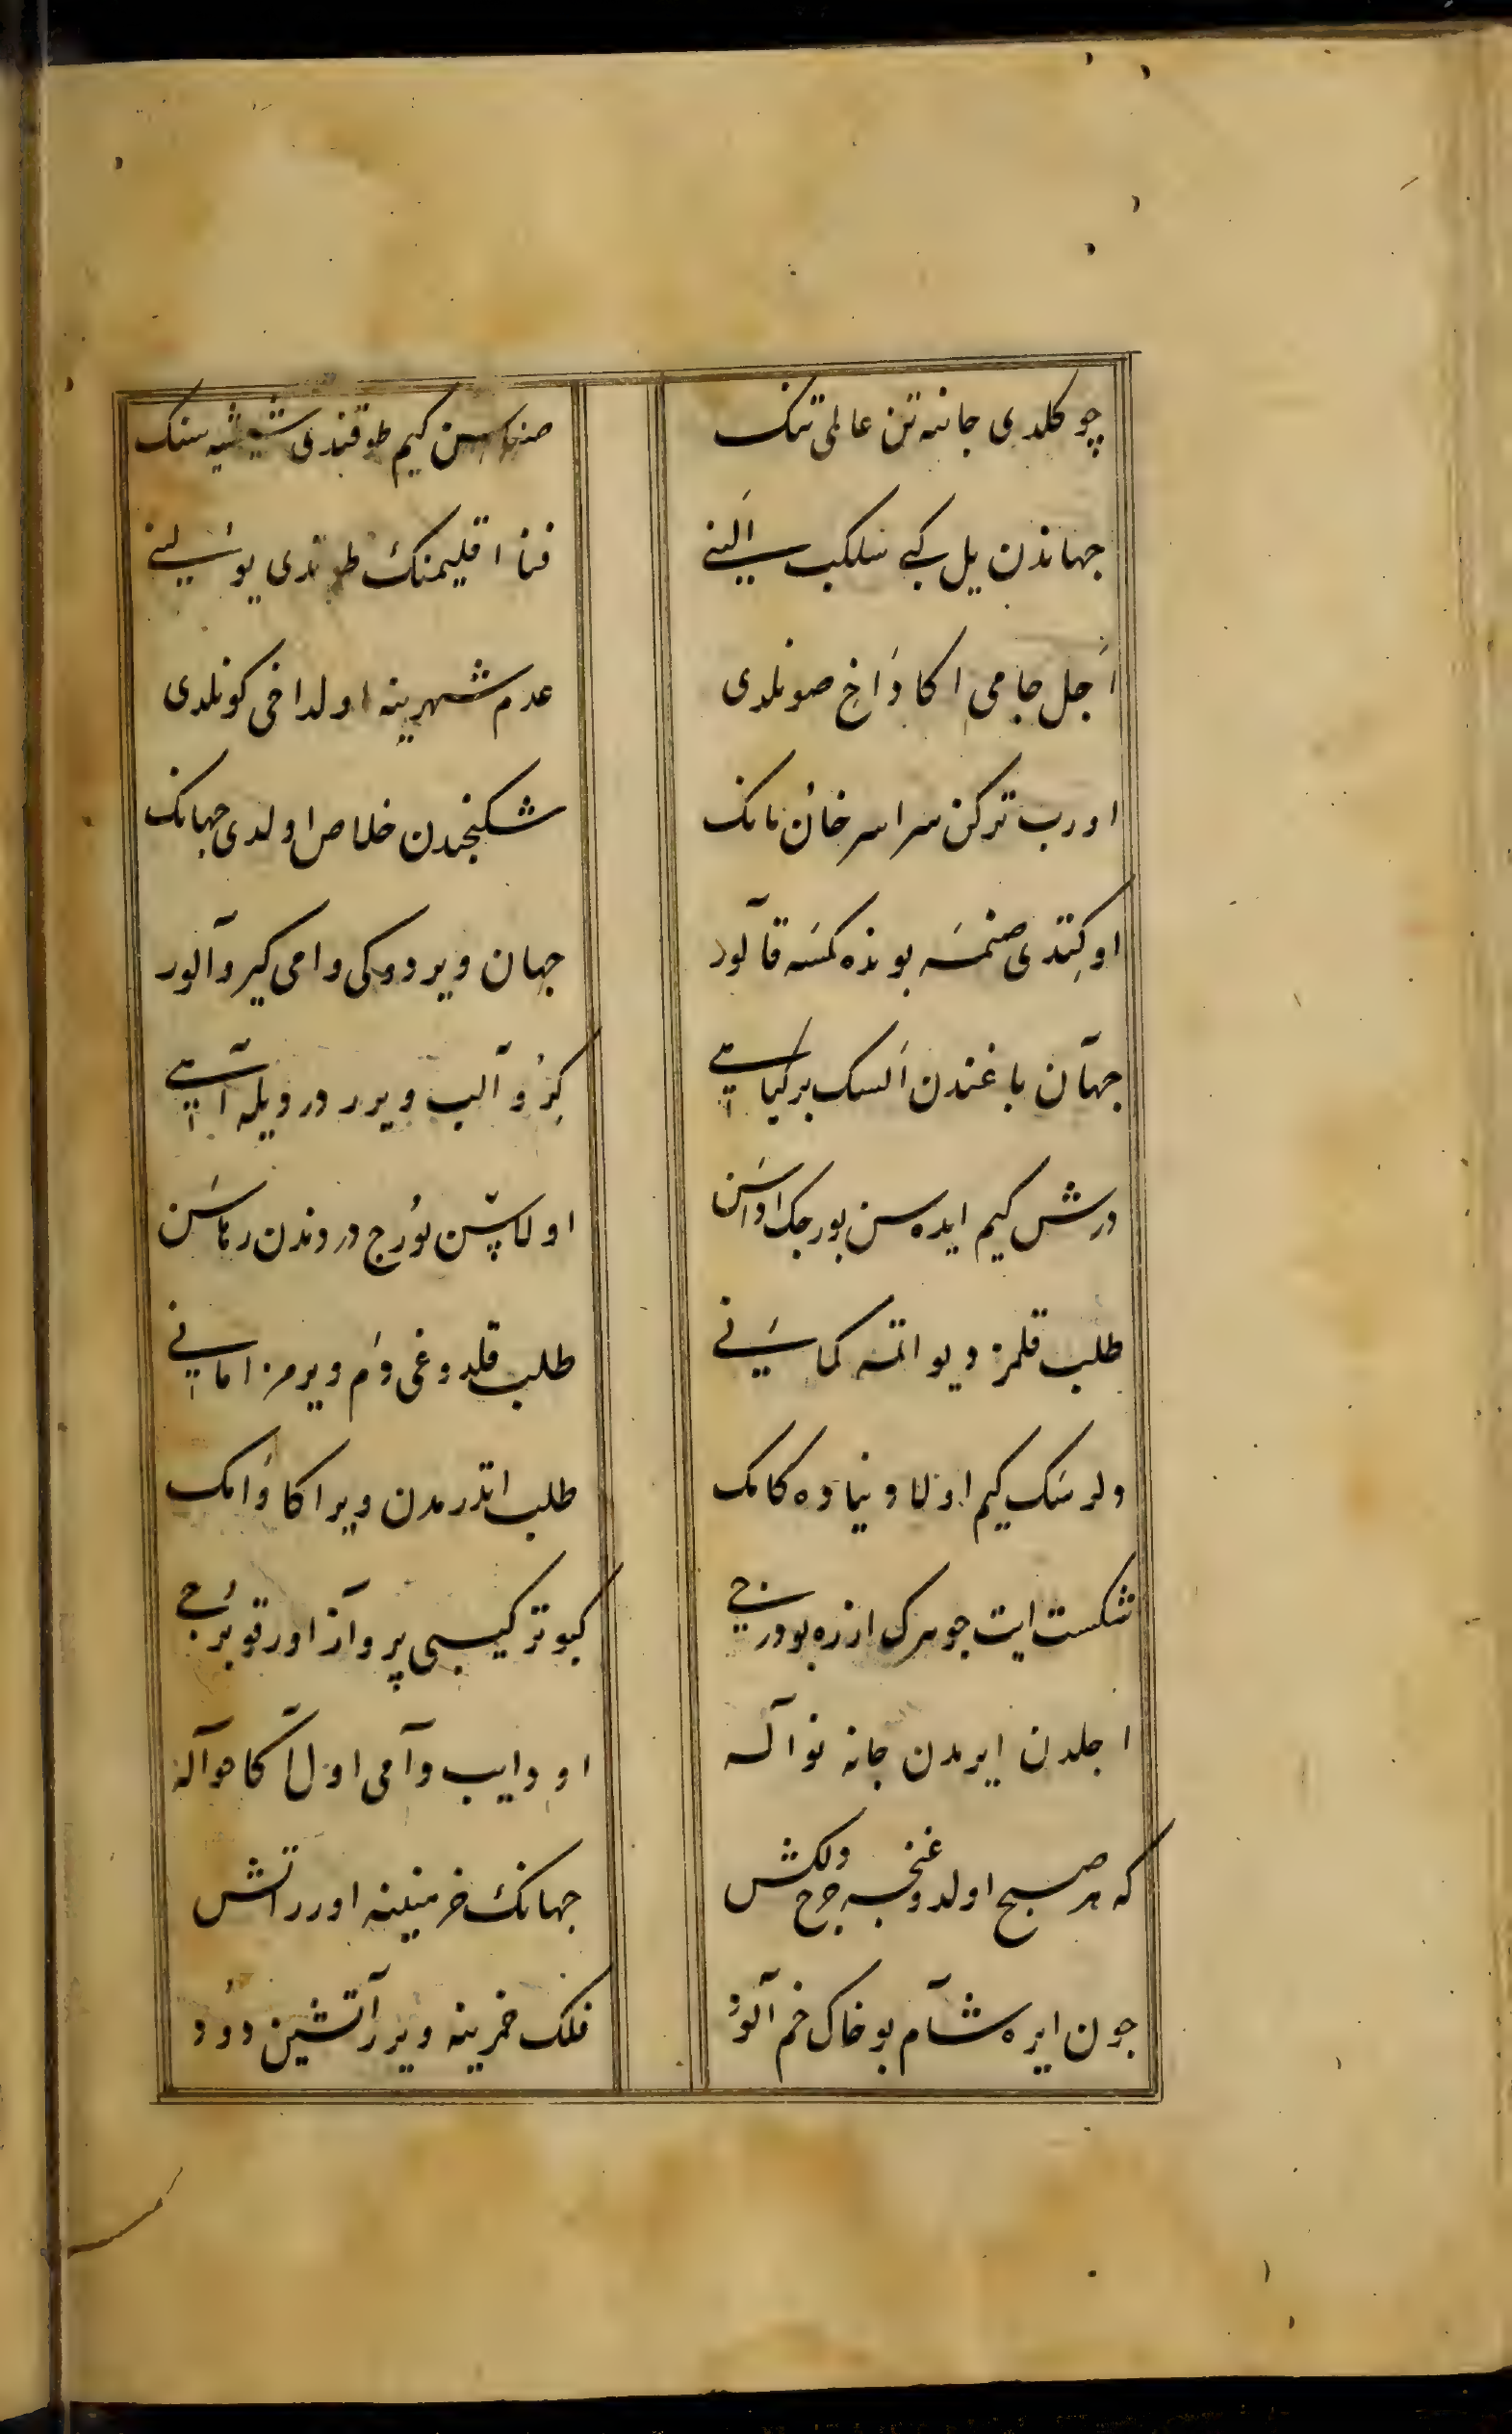 چو کلدی جاننه تن عالمی تنک
صنه‌سن کیم طوقندی شیشیه سنک
جهاندن یل کبی سلکب اَلینی
فنا اقلیمنک طوتدی یولینی
اَجل جامی اکا دَاخی صونلدی
عدم شهرینه اولداخی کونلدی
اورب ترکن سراسر خان مانک
شکنجدن خلاص اولدی جهانک
اوکِتدی صنمسَه بونده کمسَه قالور
جهان ویردوکی وامی کیرو آلور
جهان باغندن اَلسک بر کیاهی
کِرُو آلب ویرر درد ویله آهی
درش کیم ایده‌سن بورجک اداسَن
اولاسَن بُورج دردندن رهاسَن
طلب قلمز دیو اتمه کماسَنی
طلب قلدوغی دَم ویرمز امانی
دلرسَک کیم اولا دنیاده کامک
طلب اتدرمدن ویر اکا وَامک
شکست ایت جوهرک ارزه بو درجی
کبوتر کیبی پرواز اور قو بُرجی
اجلدن ایرمدن جانه نواله
اودایب وآمی اول اکا حواله
که هر صبح اولدوغنجه چرخ دلکش
جهانک خرمنینه اورر آتش
چون ایره شام بو خاک خم آلُود
فلک خمرینه ویرر آتشین دُود